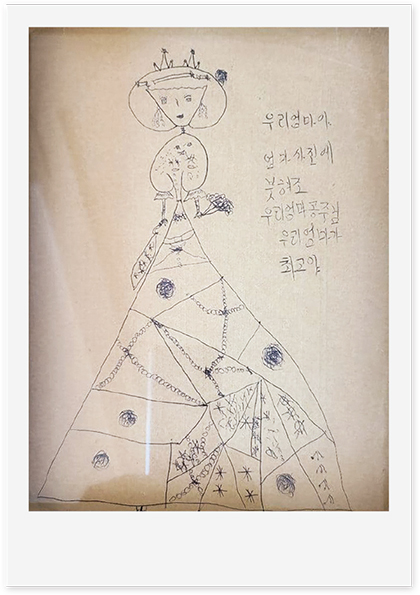 우리엄마야
엄마사진에
붓혀조
우리엄마공주님
우리엄마가
최고야